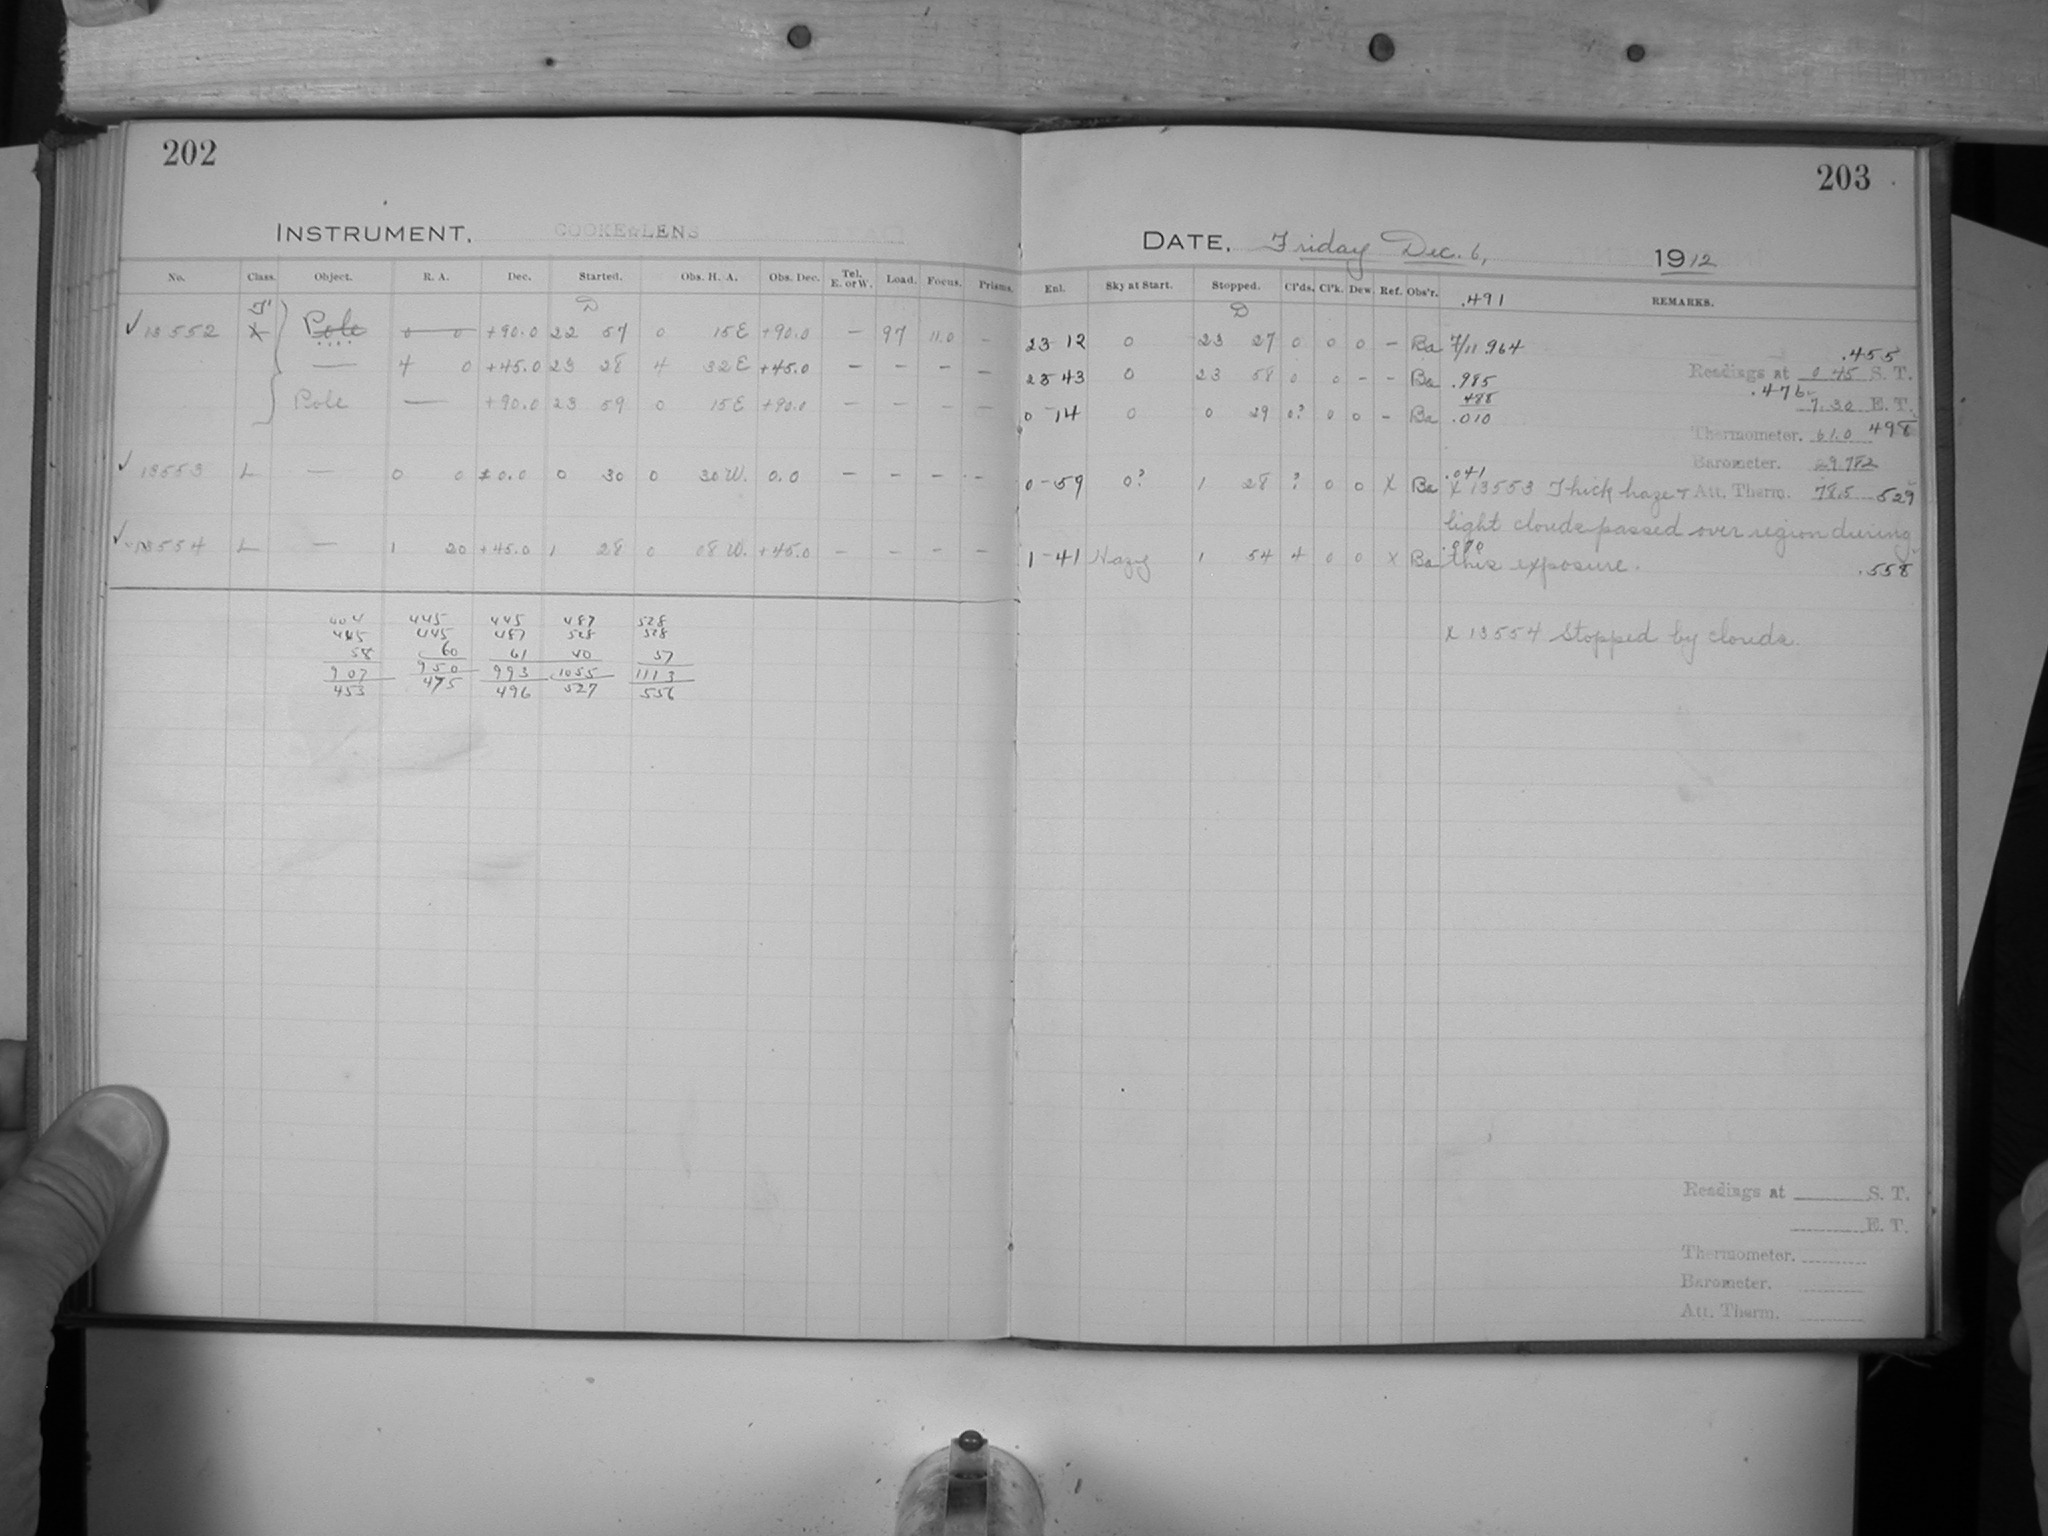 202
INSTRUMENT, COOKE LENS
No. Class. Object. R. A. Dec. Started. Obs. H. A. Obs. Dec. Tel. E. or W. Load. Focus. Prisms.
D
✓ 13552 Pole 0 0 +90.0 22 57 0 15E +90.0 — 97 11.0 —
— 4 0 +45.0 23 28 4 32E +45.0 — — — —
Pole — +90.0 23 59 0 15E +90.0 — — — —
✓ 13553 L — 0 0 0.0 0 30 0 30W. 0.0 — — — —
✓ 13554 L — 1 20 +45.0 1 28 0 08W. +45.0 — — — —
404 445 445 487 528
445 445 487 528 528
58 60 61 40 57
907 950 993 1055 1113
453 475 496 527 556
203
DATE, Friday Dec. 6, 1912
Enl. Sky at Start. Stopped. Cl'ds. Cl'k. Dew. Ref. Obs'r. .491 REMARKS.
D
23-12 0 23 27 0 0 0 — Ba 7/11.964 .455
Readings at 0 45 S. T.
23-43 0 23 58 0 0 — — Ba .985 .476
488 7.30 E. T.
0-14 0 0 29 0? 0 0 — Ba .010
Thermometer. 61.0 498
Barometer. 29.782
.041
0-59 0? 1 28 ? 0 0 X Ba X 13553 Thick haze + Att. Therm. 78.5 529
light clouds passed over region during
1-41 Hazy 1 54 4 0 0 X Ba this exposure. .558
X 13554 Stopped by clouds.
Readings at S. T.
E. T.
Thermometer.
Barometer.
Att. Therm.